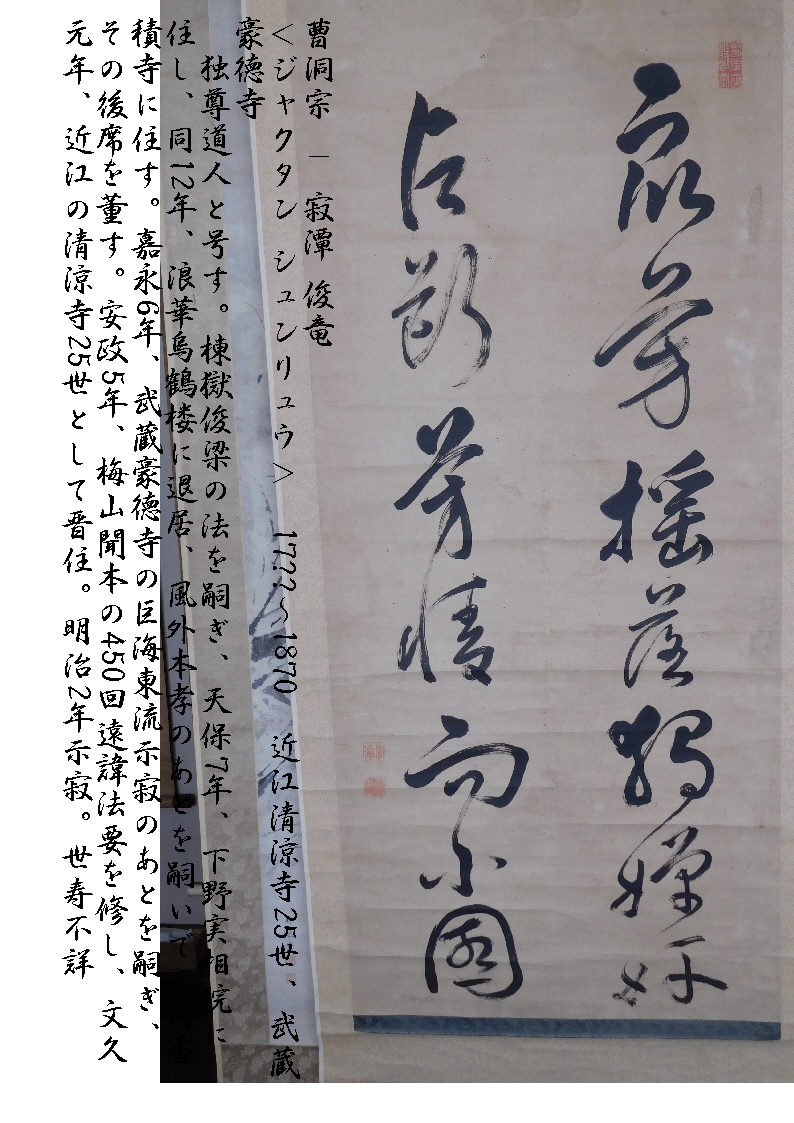 衆芳揺落獨嬋妍
占斷芳情向小園
曹洞宗 — 寂潭 俊竜
<ジャクタン シュンリュウ> 17??~1870 近江清涼寺25世、武蔵
豪徳寺
独尊道人と号す。棟嶽俊梁の法を嗣ぎ、天保7年、下野実相院に
住し、同12年、浪華烏鶴楼に退居、風外本孝のあとを嗣いで三河香
積寺に住す。嘉永6年、武蔵豪徳寺の巨海東流示寂のあとを嗣ぎ、
その後席を董す。安政5年、梅山聞本の450回遠諱法要を修し、文久
元年、近江の清涼寺25世として晋住。明治2年示寂。世寿不詳